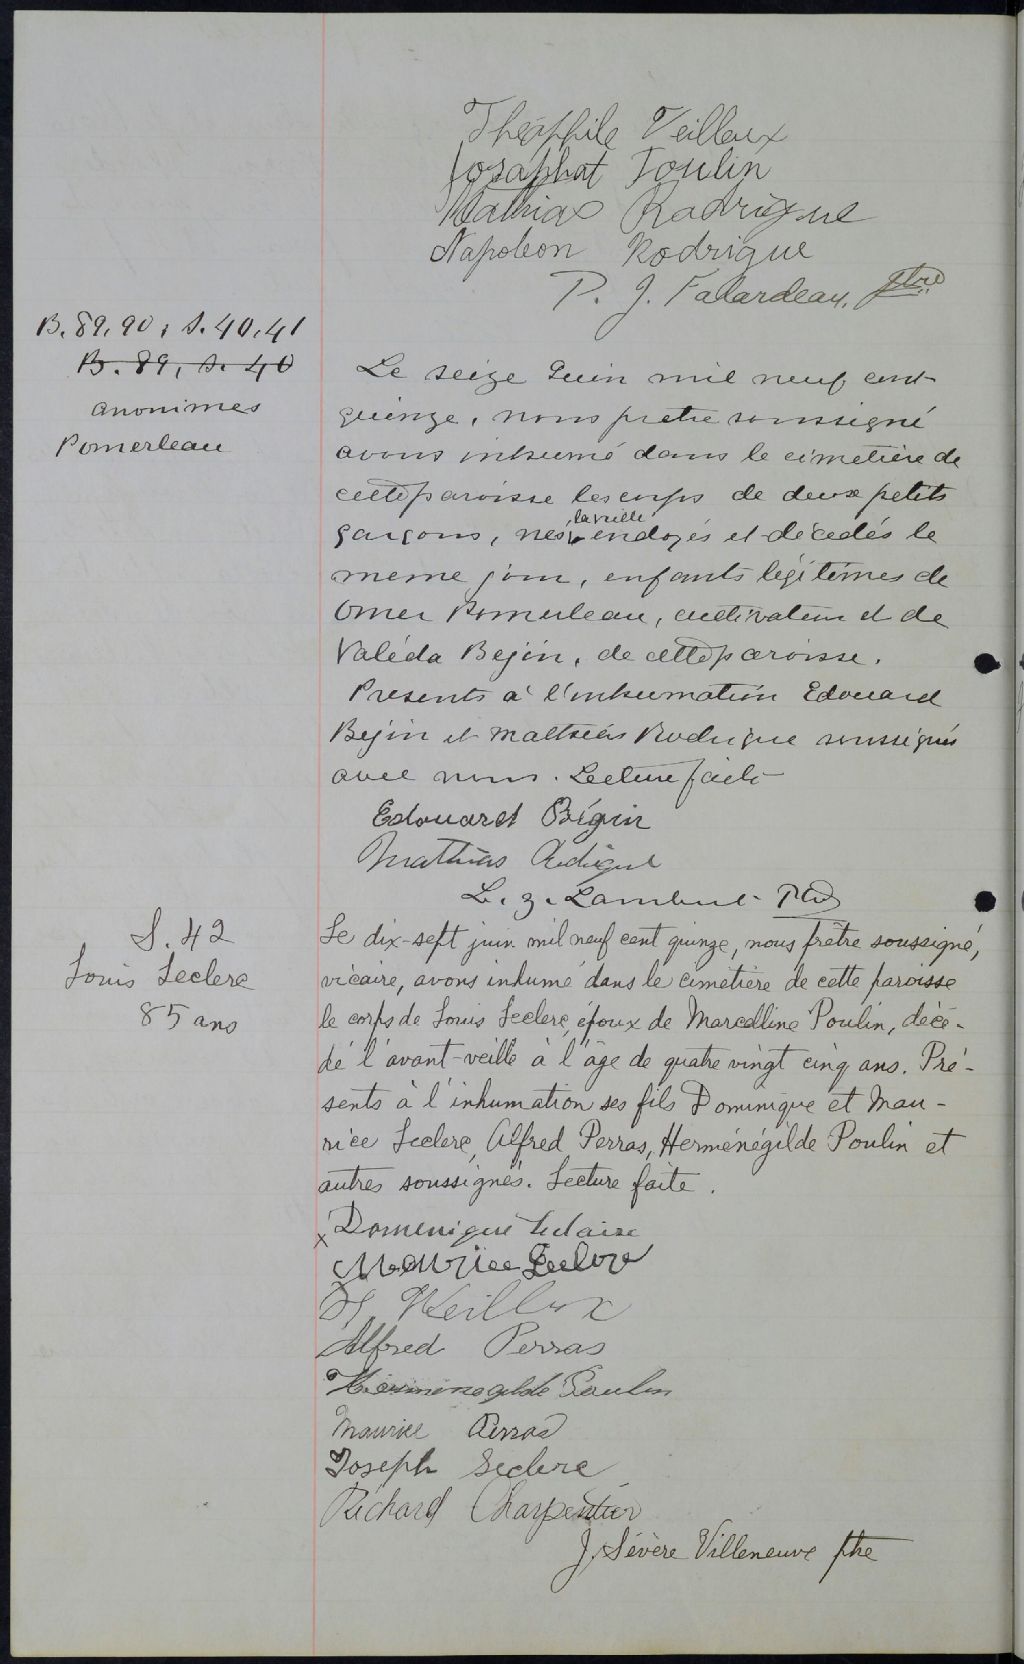 Théophile Veilleux
Josaphat Poulin
Mathias Rodrigue
Napoleon Rodrigue
P. J. Falardeau, ptre
B. 89, 90, S. 40, 41
B. 89, S. 40
anonimes
Pomerleau
Le seize Juin mil neuf cent
quinze, nous pretre soussigné
avons inhumé dans le cimetière de
cette paroisse les corps de deux petits
garçons, nés, la veille
endoyés et décédés le
meme jour, enfants légitimes de
Omer Pomerleau, cultivateur et de
Valéda Bejin, de cette paroisse.
Presents à l'inhumation Edouard
Bejin et Mathias Rodrigue soussignés
avec nous. Lecture faite
Edouard Bégin
Mathias Rodrigue
L. Z. Lambert Ptre
S. 42
Louis Leclerc
85 ans
Le dix-sept juin mil neuf cent quinze, nous prêtre soussigné,
vicaire, avons inhumé dans le cimetière de cette paroisse
le corps de Louis Leclerc, époux de Marcelline Poulin, décé-
dé l'avant-veille à l'âge de quatre vingt cinq ans. Pré-
sents à l'inhumation ses fils Dominique et Mau-
rice Leclerc, Alfred Perras, Herménégilde Poulin et
autres soussignés. Lecture faite.
x Domenique
Maurice Leclerc
Veilleux
Alfred Perras
Poulin
Maurice Perras
Joseph Leclerc
Richard Charpentier
J. Sévère Villeneuve ptre